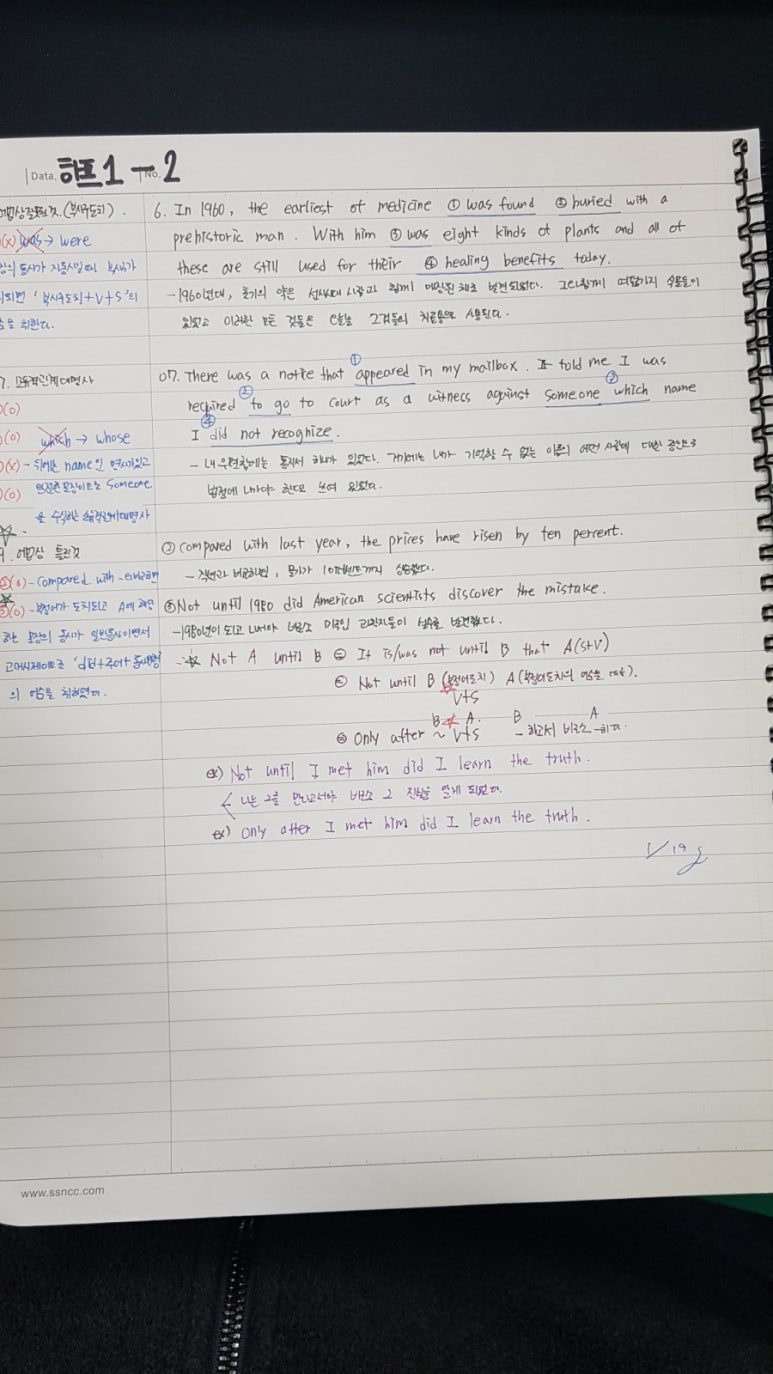 Data. 하프 1 - 2 No.
어법상 잘못된 것. (부사구도치).
(x) was → were
의 동사가 자동사일 때 부사구가
되면 '부사구도치+V+S'의
을 취한다.
6. In 1960, the earliest of medicine ① was found ② buried with a
prehistoric man. With him ③ was eight kinds of plants and all of
these are still used for their ④ healing benefits today.
- 1960년대, 초기의 약은 선사시대 사람과 함께 매장된 채로 발견되었다. 그와 함께 여덟가지 식물들이
있었고 이러한 모든 것들은 오늘날 그것들의 치료용으로 사용된다.
7. 소유격관계대명사
(o)
(o) which → whose
(x) - 뒤에는 name인 명사가 있고
(o) 완전한 문장이므로 someone
을 수식하는 소유격관계대명사
07. There was a notice that ① appeared in my mailbox. It told me I was
required ② to go to court as a witness against someone ③ which name
I ④ did not recognize.
- 내 우편함에는 통지서 하나가 있었다. 거기에는 내가 기억할 수 없는 이름의 어떤 사람에 대한 증인으로
법정에 나가야 한다고 쓰여 있었다.
9. 어법상 틀린것
②(o) - compared with -
③(o) - 부정어가 도치되고 A에
하는 문장의 동사가 일반동사이면서
과거시제이므로 'did+주어+동사원형
의 어순을 취하였다.
② compared with last year, the prices have risen by ten percent.
- 작년과 비교하면, 물가가 10퍼센트까지 상승했다.
③ Not until 1980 did American scientists discover the mistake.
- 1980년이 되고 나서야 비로소 미국인 과학자들이 실수를 발견했다.
☆ Not A until B = It is/was not until B that A(S+V)
= Not until B (부정어도치) A (부정어도치의 어순 대로).
V+S
B ☆ A. B A
= Only after ~ V+S - 하고서 비로소 -하다.
ex) Not until I met him did I learn the truth.
나는 그를 만나고서야 비로소 그 진실을 알게 되었다.
ex) Only after I met him did I learn the truth.
www.ssncc.com